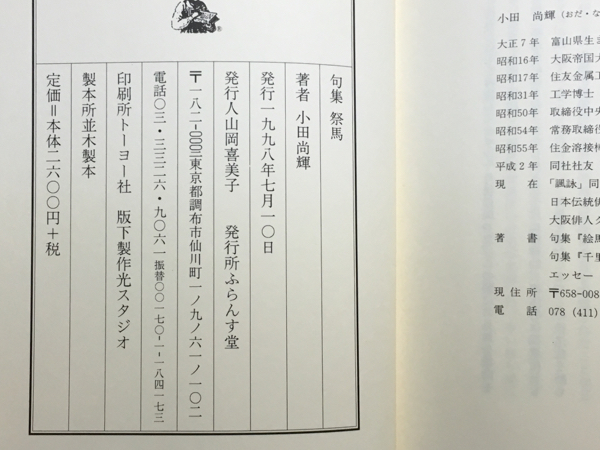 句集 祭馬
著者 小田尚輝
発行一九九八年七月一〇日
発行人山岡喜美子 発行所ふらんす堂
〒一八二-〇〇〇三東京都調布市仙川町一ノ九ノ六一ノ一〇二
電話〇三・三三二六・九〇六一振替〇〇一七〇-一-一八四一七三
印刷所トーヨー社 版下製作光スタジオ
製本所並木製本
定価=本体二六〇〇円+税
小田 尚輝(おだ・な
大正7年 富山県生ま
昭和16年 大阪帝国大
昭和17年 住友金属工
昭和31年 工学博士
昭和50年 取締役中央
昭和54年 常務取締役
昭和55年 住金溶接棒
平成2年 同社社友
現在 「諷詠」同
日本伝統俳
大阪俳人ク
著書 句集『絵馬
句集『千里
エッセー
現住所 〒658-008
電話 078 (411)